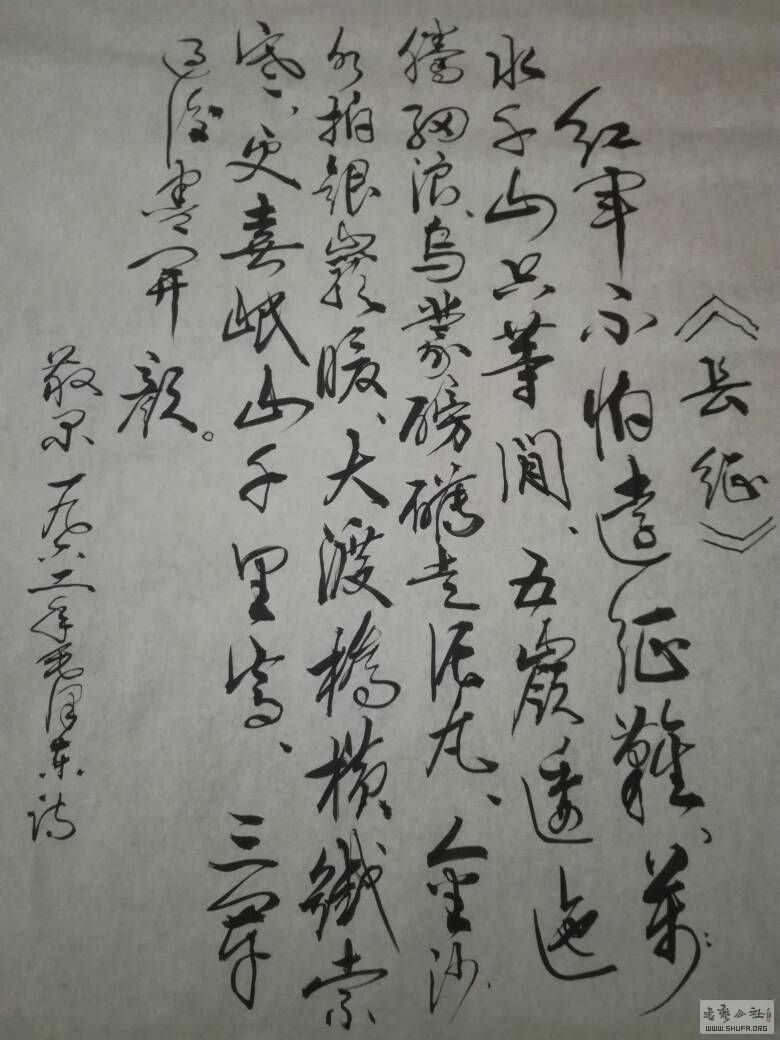 《長征》
紅軍不怕遠征難、萬
水千山只等閒、五嶺逶迤
騰細浪、烏蒙磅礴走泥丸、金沙
水拍銀暖、大渡橋横鐵索
寒、更喜岷山千里雪、三軍
過後盡開顏。
敬录一九六二年毛澤東詩
書藝公社
WWW.SHUFA.ORG